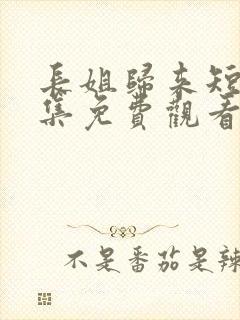 長姐歸來短
集免費觀看
不是番茄是辣